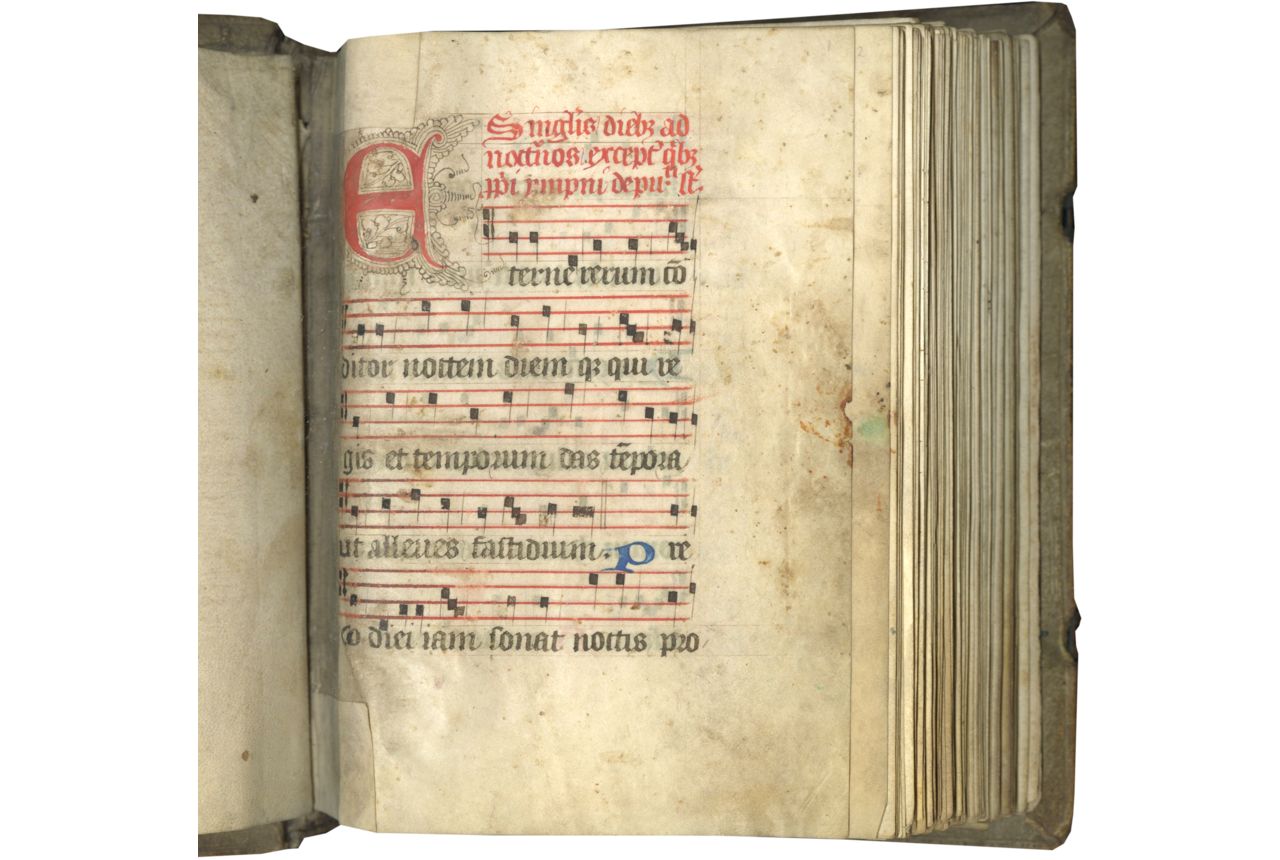 Singl̃is dieb₃ ad
noctũos except̉ q̃b₃
p̱p̱i ẏmpni depu⁻ᵗⁱ st̉.
Eterne rerum cō
ditor noctem diem q₃ qui re
gis et temporum das tēpora
ut alleues fastidium. Pre
co diei iam sonat noctis pro